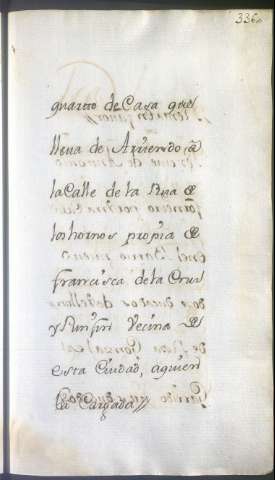 336
quarto de Casa que
lleva de Arriendo a
la Calle de la
los hornos propia de
francisca de la Cruz
y Vecina de
esta Ciudad, a quien
Cargada